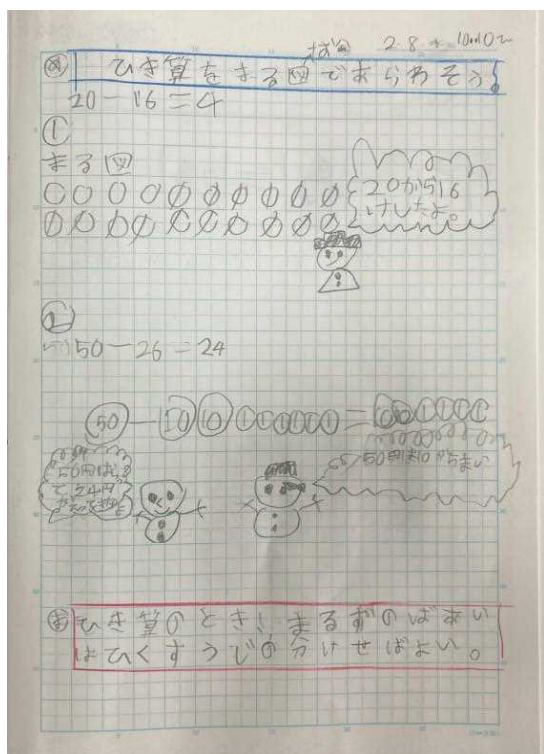 2.8
め ひき算をまる図であらわそう。
20-16=4
①
まる図
20から16
けしたよ。
②
50-26=24
50 - 10 10 1 1 1 1 1 1 = 10 10 1 1 1 1
50円は10が5まい
ま ひき算のとき、まるずのばあい
はひくすうじの分けせばよい。